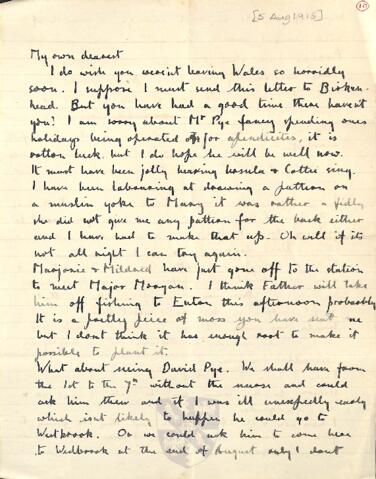 10
[5 Aug 1915]
My own dearest
I do wish you weren't leaving Wales so horridly
soon. I suppose I must send this letter to Birken-
head. But you have had a good time there haven't
you? I am sorry about Mr Pye fancy spending ones
holidays being operated for apendicities, it is
rotten luck but I do hope he will be well now.
It must have been jolly hearing Ursula & Cottie sing.
I have been labouring at drawing a pattern on
a muslin yoke to Mary it was rather a fiddly
she did not give me any pattern for the back either
and I have had to make that up. Oh well if its
not all right I can try again.
Marjorie & Mildred have just gone off to the station
to meet Major Morgan. I think Father will take
him off fishing to Enton this afternoon probably
It is a pretty piece of moss you have sent me
but I dont think it has enough root to make it
possible to plant it.
What about seeing David Pye. We shall have from
the 1st to the 7th without the nurse and could
ask him then and if I was ill unexpectedly early
which isnt likely to happen he could go to
Westbrook. Or we could ask him to come here
to Westbrook at the end of August only I dont